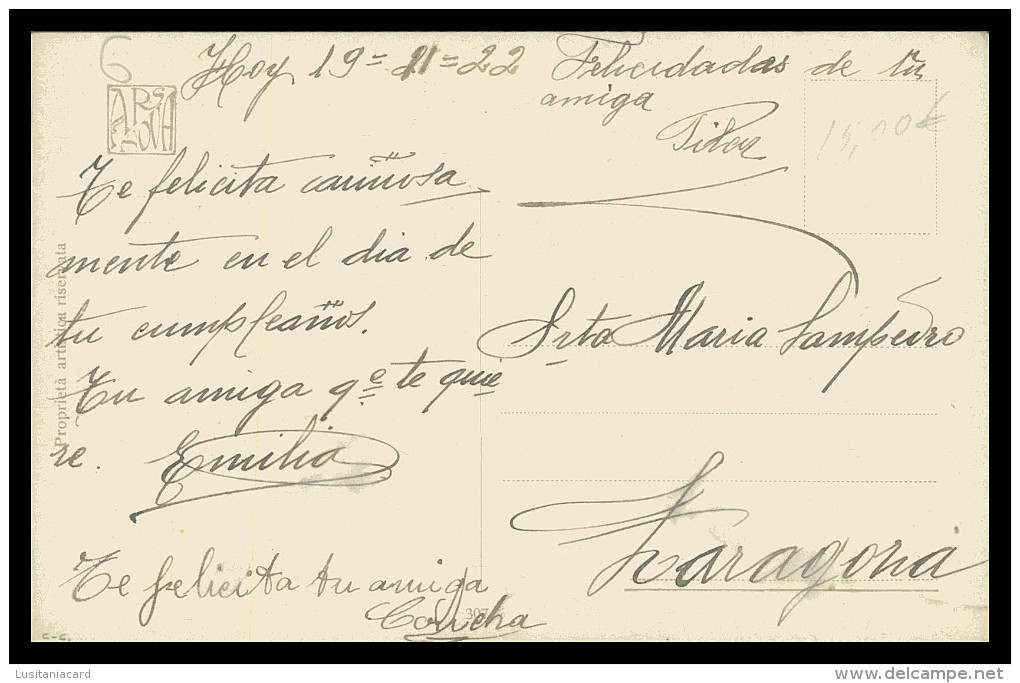 6
Hoy 19=11=22
ARS NOVA
Te felicita cariñosa
mente en el dia de
tu cumpleaños.
Tu amiga qe te quie
re. Emilia
Te felicita tu amiga
Concha
Felicidadas de tu
amiga
Pilar
15,00€
Srta Maria Sampedro
Zaragoza
Proprietà artistica riservata
307
c-c.
Lusitaniacard
www.delcampe.net